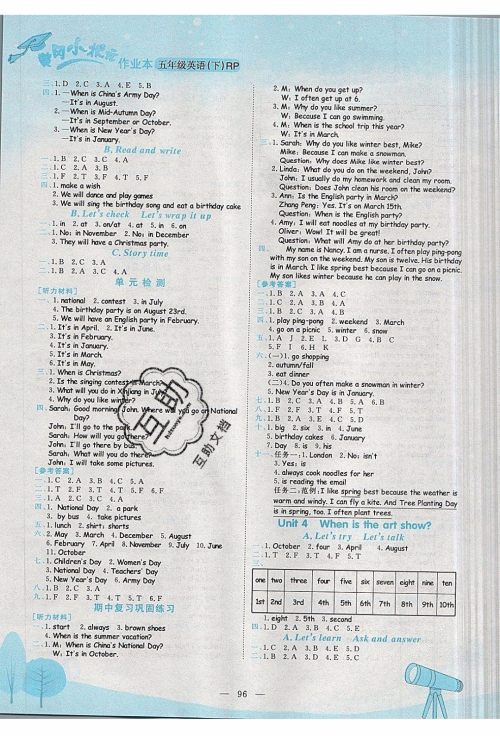 黄冈小状元 作业本 五年级英语(下)RP
三、1. D 2. C 3. A 4. E 5. B
四、1. —When is China's Army Day?
—It's in August.
2. —When is Mid-Autumn Day?
—It's in September or October.
3. —When is New Year's Day?
—It's in January.
B. Read and write
一、1. B 2. C 3. C 4. A
二、1. C 2. A 3. B
三、1. F 2. T 3. F 4. T 5. F
四、1. make a wish
2. We will dance and play games
3. We will sing the birthday song and eat a birthday cake
B. Let's check Let's wrap it up
一、1. in 2. at 3. on/at 4. at 5. in 6. on
二、1. No; in November 2. No; in December
3. They will have a Christmas party.
C. Story time
一、1. B 2. C 3. A
二、1. B 2. A 3. C 4. A
单元检测
[听力材料]
一、1. national 2. contest 3. in July
4. The birthday party is on August 23rd.
5. We will have an English party in February.
二、1. It's in April. 2. It's in June.
3. It's in February.
4. It's in January.
5. It's in March.
6. It's in May.
三、1. When is Christmas?
2. Is the singing contest in March?
3. What will you do in Xinjiang in July?
4. Why do you like winter?
四、Sarah: Good morning, John. Where will you go on National
Day?
John: I'll go to the park.
Sarah: How will you go there?
John: I'll go there by bus.
Sarah: What will you do there?
John: I will take some pictures.
[参考答案]
一、1. C 2. A 3. B 4. C 5. A
二、1. T 2. F 3. T 4. T 5. F 6. F
三、1. A 2. C 3. C 4. A
四、1. National Day 2. a park
3. by bus 4. take pictures
五、1. lunch 2. shirt; shorts
六、2. May 3. March 4. December 5. August
6. February 7. April 8. November 9. July 10. June
11. October
七、1. Children's Day 2. Women's Day
3. National Day 4. Teachers' Day
5. New Year's Day 6. Army Day
八、1. B 2. C 3. A
九、1. F 2. F 3. T 4. T 5. T 6. F
期中复习巩固练习
[听力材料]
一、1. start 2. always 3. brown shoes
4. When is the summer vacation?
二、1. M: When is China's National Day?
W: It's in October.
2. M: When do you get up?
W: I often get up at 6.
3. M: Why do you like summer?
W: Because I can go swimming.
4. M: When is the school trip this year?
W: It's in March.
三、1. Sarah: Why do you like winter best, Mike?
Mike: Because I can make a snowman.
Question: Why does Mike like winter best?
2. Linda: What do you do on the weekend, John?
John: I usually do my homework and clean my room.
Question: Does John clean his room on the weekend?
3. Ann: Is the English party in March?
Zhang Peng: Yes. It's on March 15th.
Question: When is the English party?
4. Amy: I will eat noodles at my birthday party.
Oliver: Wow! It will be great!
Question: What will Amy do at her birthday party?
四、My name is Nancy. I am a nurse. I often play ping-pong
with my son on the weekend. My son is twelve. His birthday
is in March. I like spring best because I can go on a picnic.
My son likes winter because he can play in the snow.
[参考答案]
一、1. B 2. A 3. A 4. C
二、1. C 2. A 3. B 4. A
三、1. B 2. C 3. A 4. B
四、1. play ping-pong 2. weekend 3. March
4. go on a picnic 5. winter 6. snow
五、1. A J 2. E L 3. D G 4. B C
5. F I 6. H K
六、(一)1. go shopping
2. autumn/fall
3. eat dinner
(二)4. Do you often make a snowman in winter?
5. New Year's Day is in January.
七、1. B 2. C 3. A 4. B 5. A 6. B
八、1. F 2. F 3. T 4. F 5. T
九、1. B 2. A 3. E 4. C 5. D
十、1. big 2. six 3. in 4. June
5. birthday cakes 6. January
7. Day 8. is 9. his
十一、任务一:1. London 2. No; isn't
3. Yes; is
4. always cook noodles for her
5. is reading the email
任务二:范例:I like spring best because the weather is
warm and windy. I can fly a kite. And Tree Planting Day
is in spring, too. I often plant trees.
Unit 4 When is the art show?
A. Let's try Let's talk
一、1. October 2. four 3. April 4. August
二、1. T 2. F 3. T 4. F 5. T
三、
one two three four five six seven eight nine ten
1st 2nd 3rd 4th 5th 6th 7th 8th 9th 10th
1. eight 2. 5th 3. second
四、1. D 2. A 3. B 4. C 5. E
A. Let's learn Ask and answer
一、1. C 2. A 3. B 4. E 5. D
二、1. B 2. A 3. D 4. E 5. C
互助
互助文档
— 96 —